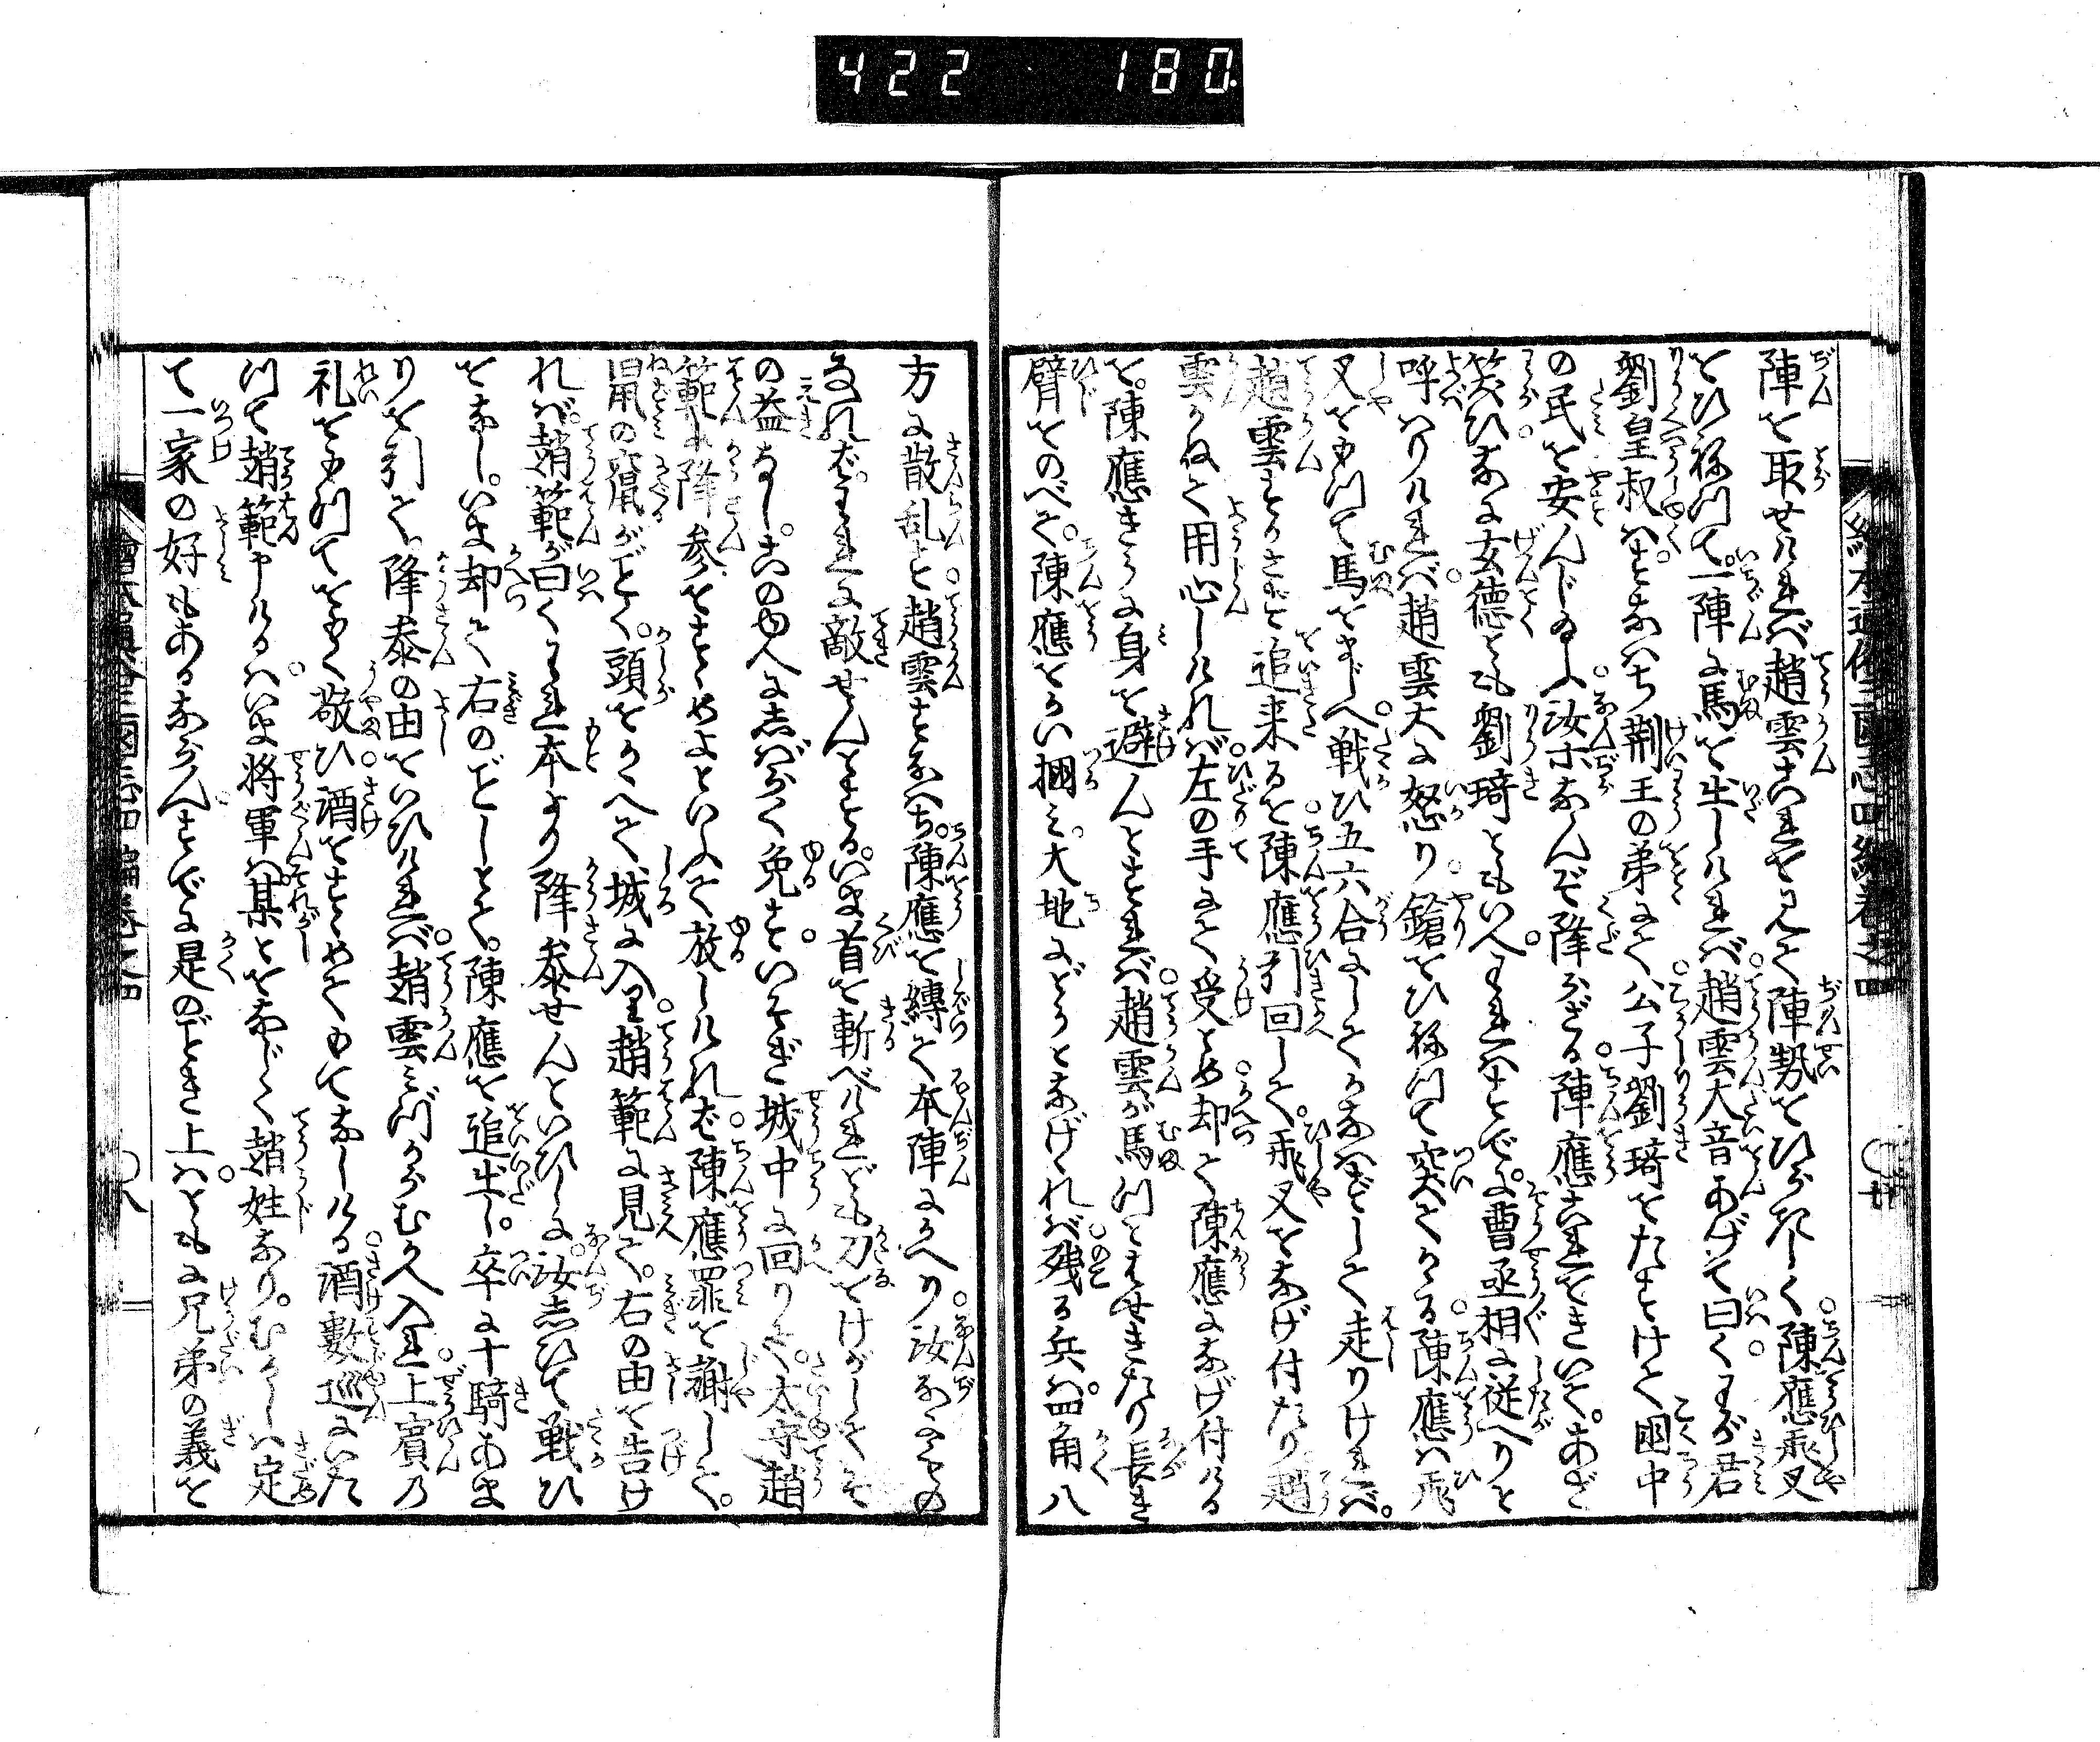 422 180
繪本通俗三國志四編卷之四
陣を取せければ趙雲これを見て陣勢をひらかしく陳應飛叉
をひねつて一陣に馬を出しければ趙雲大音あげて曰くわが君
劉皇叔はすなはち荊王の弟にて公子劉琦をたすけて國中
の民を安んじ給ふ汝ホなんぞ降らざる陳應これをきいてあざ
笑ひなに玄德とも劉琦ともいへわれはすでに曹丞相に従へりと
呼はりければ趙雲大に怒り鎗をひねつて突てかゝる陳應は飛
叉をもつて馬をまじへ戦ひ五六合にしてかなはずして走りければ
趙雲すかさず追来るを陳應引回して飛叉をなげ付たり趙
雲かねて用心しければ左の手にて受とめ却て陳應になげ付ける
を陳應きうに身を避んとすれば趙雲が馬つとはせきたり長き
臂をのべて陳應をかい掴み大地にどうとなげければ残る兵は四角八
方に散乱と趙雲すなはち陳應を縛て本陣にかへり汝なんぞ
なれがわれに敵せんとするいま首を斬べけれども刀をけがしてそ
の益なしこのゆへにしばらく免すいそぎ城中に回りて太守趙
範に降参をすゝめよといふて放しければ陳應罪を謝して
鼠の竄がごとく頭をかゝへて城に入り趙範に見て右の由を告け
れば趙範が曰くわれ本より降参せんといひしに汝しひて戦ひ
をなしいま却て右のごとしとて陳應を追出し卒に十騎あま
りを引て降参の由をいひければ趙雲みづからむかへ入れ上賓の
礼をもつてをもく敬ひ酒をすゝめてもてなしける酒數巡にいた
つて趙範申けるはいま将軍も某とをなじく趙姓なりむかしは定
て一家の好もあるならんすでに是のごとき上はともに兄弟の義を
繪本通俗三國志四編卷之四
〇八